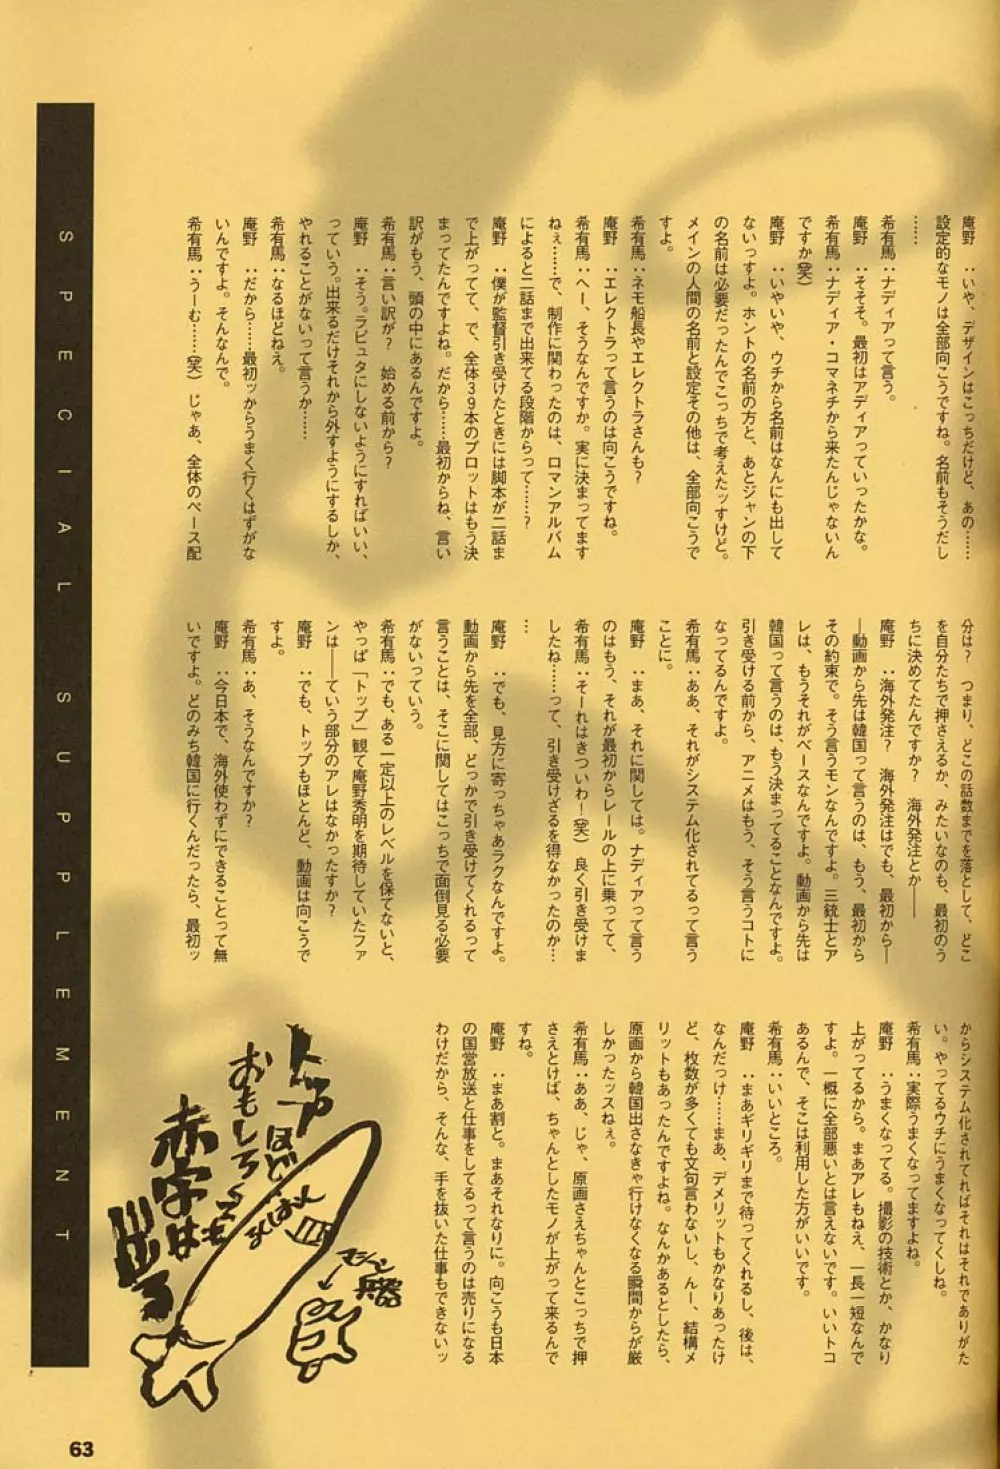 庵野　：いや、デザインはこっちだけど、あの……
設定的なモノは全部向こうですね。名前もそうだし
……
希有馬：ナディアって言う。
庵野　：そそそ。最初はアディアっていったかな。
希有馬：ナディア・コマネチから来たんじゃないん
ですか(笑)
庵野　：いやいや、ウチから名前はなんにも出して
ないっすよ。ホントの名前の方と、あとジャンの下
の名前は必要だったんでこっちで考えたッすけど。
メインの人間の名前と設定その他は、全部向こうで
すよ。
希有馬：ネモ船長やエレクトラさんも？
庵野　：エレクトラって言うのは向こうですね。
希有馬：へー、そうなんですか。実に決まってます
ねぇ……で、制作に関わったのは、ロマンアルバム
によると二話まで出来てる段階からって………？
庵野　：僕が監督引き受けたときには脚本が二話ま
で上がってて、で、全体３９本のプロットはもう決
まってたんですよね。だから……最初からね、言い
訳がもう、頭の中にあるんですよ。
希有馬：言い訳が？　始める前から？
庵野　：そう。ラピュタにしないようにすればいい、
っていう。出来るだけそれから外すようにするしか、
やれることがないって言うか……
希有馬：なるほどねえ。
庵野　：だから……最初ッからうまく行くはずがな
いんですよ。そんなんで。
希有馬：うーむ……(笑)　じゃあ、全体のペース配
分は？　つまり、どこの話数までを落として、どこ
を自分たちで押さえるか、みたいなのも、最初のう
ちに決めてたんですか？　海外発注とか――
庵野　：海外発注？　海外発注はでも、最初から―
―動画から先は韓国って言うのは、もう、最初から
その約束で。そう言うモンなんですよ。三銃士とア
レは、もうそれがベースなんですよ。動画から先は
韓国って言うのは、もう決まってることなんですよ。
引き受ける前から、アニメはもう、そう言うコトに
なってるんですよ。
希有馬：ああ、それがシステム化されてるって言う
ことに。
庵野　：まあ、それに関しては。ナディアって言う
のはもう、それが最初からレールの上に乗ってて、
希有馬：そーれはきついわー(笑)　良く引き受けま
したね……って、引き受けざるを得なかったのか…
…
庵野　：でも、見方に寄っちゃあラクなんですよ。
動画から先を全部、どっかで引き受けてくれるって
言うことは、そこに関してはこっちで面倒見る必要
がないっていう。
希有馬：でも、ある一定以上のレベルを保てないと、
やっぱ「トップ」観て庵野秀明を期待していたファ
ンは――ていう部分のアレはなかったすか？
庵野　：でも、トップもほとんど、動画は向こうで
すよ。
希有馬：あ、そうなんですか？
庵野　：今日本で、海外使わずにできることって無
いですよ。どのみち韓国に行くんだったら、最初ッ
からシステム化されてればそれはそれでありがた
い。やってるウチにうまくなってくしね。
希有馬：実際うまくなってますよね。
庵野　：うまくなってる。撮影の技術とか、かなり
上がってるから。まあアレもねえ、一長一短なんで
すよ。一概に全部悪いとは言えないです。いいトコ
あるんで、そこは利用した方がいいです。
希有馬：いいところ。
庵野　：まあギリギリまで待ってくれるし、後は、
なんだっけ……まあ、デメリットもかなりあったけ
ど、枚数が多くても文句言わないし、んー、結構メ
リットもあったんですよね。なんかあるとしたら、
原画から韓国出さなきゃ行けなくなる瞬間からが厳
しかったッスねぇ。
希有馬：ああ、じゃ、原画さえちゃんとこっちで押
さえとけば、ちゃんとしたモノが上がって来るんで
すね。
庵野　：まあ割と。まあそれなりに。向こうも日本
の国営放送と仕事をしてるって言うのは売りになる
わけだから、そんな、手を抜いた仕事もできないッ
トップほど
おもしろくても
赤字は
出る
マシーン
兵器
SPECIAL SUPPLEMENT
63